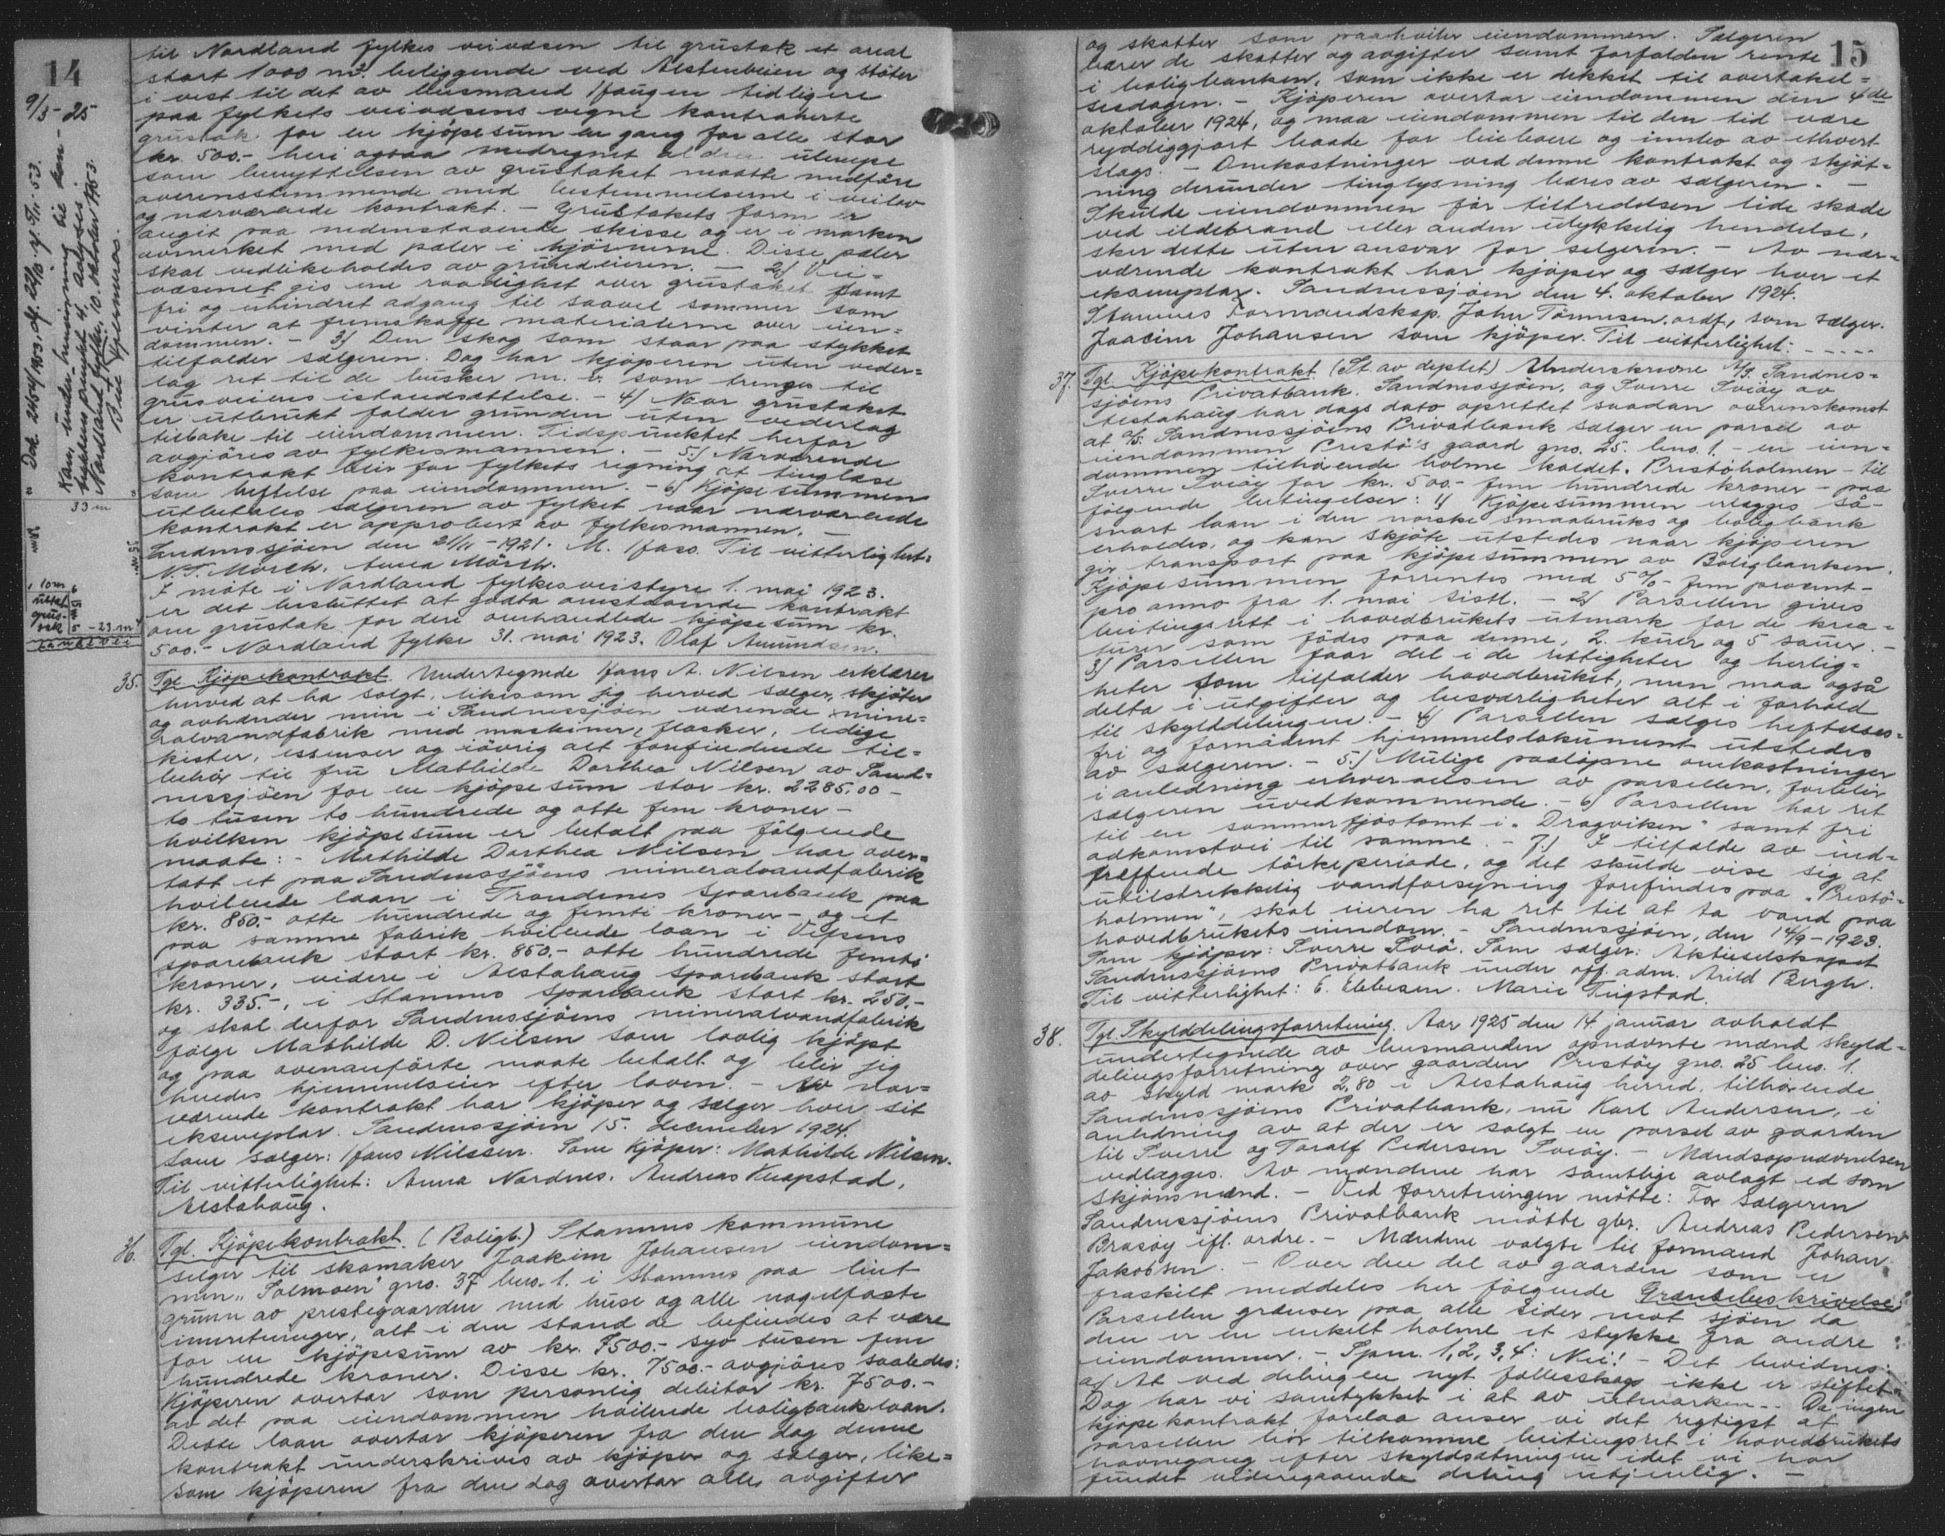 14
9/3-25
til Nordland fylkes veivæsen til grustak et areal
stort 1000 m². beliggende ved Alstenveien og støter
i vest til det av husmand Haugen tidligere
paa fylkets veivæsens vegne kontraherte
grustak for en kjøpesum en gang for alle stor
kr. 500.- heri ogsaa medregnet al den ulempe
som benyttelsen av grustaket maatte medføre
overensstemmende med bestemmelserne i veilov
og nærværende kontrakt. - Grustakets form er
angit paa nedenstaaende skisse og er i marken
avmerket med pæler i hjørnerne. Disse pæler
skal vedlikeholdes av grundeieren. - 2) Vei-
væsenet gis ene raadighet over grustaket samt
fri og uhindret adgang til saavel sommer som
vinter at fremskaffe materialerne over eien-
dommen. - 3) Den skog som staar paa stykket
tilfalder sælgeren. Dog har kjøperen uten veder-
lag ret til de busker m. v. som trenges til
grusveiens istandsættelse. - 4) Naar grustaket
er utbrukt falder grunden uten vederlag
tilbake til eiendommen. Tidspunktet herfor
avgjøres av fylkesmannen. - 5) Nærværende
kontrakt blir for fylkets regning at tinglæse
som heftelse paa eiendommen. - 6) Kjøpesummen
utbetales sælgeren av fylket naar nærværende
kontrakt er approbert av fylkesmannen.
Sandnessjøen den 21/11-1921. M. Haso. Til vitterlighet:
N.T. Mørch. Anna Mørch.
I møte i Nordland fylkesveistyre 1. mai 1923.
er det besluttet at godta omstaaende kontrakt
om grustak for den omhandlede kjøpesum kr.
500.- Nordland fylke 31. mai 1923. Olaf Amundsen.
35. Tgl. Kjøpekontrakt. Undertegnede Hans A. Nilsen erklærer
herved at ha solgt, likesom jeg herved sælger, skjøter
og avhænder min i Sandnessjøen værende mine-
ralvandfabrik med maskiner, flasker, ledige
kister, essenser og iøvrig alt forefindende til-
behør til fru Mathilde Dorthea Nilsen av Sand-
nessjøen for en kjøpesum stor kr. 2285,00 -
to tusen to hundrede og otte fem kroner -
hvilken kjøpesum er betalt paa følgende
maate: - Mathilde Dorthea Nilsen har over-
tatt et paa Sandnessjøens mineralvandfabrik
hvilende laan i Trondenes sparebank paa
kr. 850.- otte hundrede og femti kroner - og et
paa samme fabrik hvilende laan i Vefsens
sparebank stort kr. 850.- otte hundrede femti
kroner, videre i Alstahaug sparebank stort
kr. 335.-, i Stamnes sparebank stort kr. 250,-
og skal derfor Sandnessjøens mineralvandfabrik
følge Mathilde D. Nilsen som lovlig kjøpt
og paa ovenanførte maate betalt og blir jeg
hendes hjemmelseier efter loven. - Av nær-
værende kontrakt har kjøper og sælger hver sit
eksemplar. Sandnessjøen 15. december 1924.
Som sælger: Hans Nilssen. Som kjøper: Mathilde Nilsen.
Til vitterlighet: Anna Nordnes. Andreas Knapstad,
Alstahaug.
36. Tgl. Kjøpekontrakt. (Boligb.) Stamnes kommune
selger til skomaker Joakim Johansen eiendom-
men "Solmoen" gno. 37 bno. 1. i Stamnes paa leiet
grunn av prestegaarden med huse og alle nagelfaste
innretninger, alt i den stand de befindes at være
for en kjøpesum av kr. 7500.- syv tusen fem
hundrede kroner. Disse kr. 7500.- avgjøres saaledes:
Kjøperen overtar som personlig debitor kr. 7500.-
av det paa eiendommen hvilende boligbanklaan.
Dette laan overtar kjøperen fra den dag denne
kontrakt underskrives av kjøper og sælger, like-
som kjøperen fra den dag overtar alle avgifter
Dok. 2454/1953. df. 22/10. y. 5/11. 53.
Kan, under henvisning til kon-
traktens punkt 4, avlyses.
Nordland fylke, 10. oktober 1953.
33 m
10 m
uttat
grus-
tak
- 23. m
Landevei
15
og skatter som paahviler eiendommen. Sælgeren
bærer de skatter og avgifter samt forfalden rente
i boligbanken, som ikke er dekket til overtakel-
sesdagen. - Kjøperen overtar eiendommen den 4de
oktober 1924, og maa eiendommen til den tid være
ryddiggjort baade for leieboere og innbo av ethvert
slags. - Omkostninger ved denne kontrakt og skjøt-
ning derunder tinglysning bæres av sælgeren. -
Skulde eiendommen før tiltredelsen lide skade
ved ildebrand eller anden ulykkelig hendelse,
sker dette uten ansvar for selgeren. - Av nær-
værende kontrakt har kjøper og sælger hver et
eksemplar. Sandnessjøen den 4. oktober 1924.
Stamnes Formandskap. John Tønnesen, ordf, som sælger.
Joacim Johansen som kjøper. Til vitterlighet: - - - - -
37. Tgl. Kjøpekontrakt (St. av deptet) Underskrevne A/S. Sandnes-
sjøens Privatbank. Sandnessjøen, og Sverre Sviøy av
Alstahaug har dags dato oprettet saadan overenskomst
at A/S. Sandnessjøens Privatbank sælger en parsel av
eiendommen Prestø's gaard gno. 25. bno. 1. - en eien-
dommen tilhørende holme kaldet. Prestøholmen - til
Sverre Sviøy for kr. 500.- fem hundrede kroner - paa
følgende betingelser: 1) Kjøpesummen erlegges så-
snart laan i den norske smaabruks og boligbank
erholdes, og kan skjøte utstedes naar kjøperen
gir transport paa kjøpesummen av Boligbanken.
Kjøpesummen forrentes med 5% - fem procent -
pro anno fra 1. mai sistl. - 2) Parsellen gives
beitingsrett i hovedbrukets utmark for de krea-
turer som fødes paa denne, 2. kuer og 5 sauer. -
3) Parsellen faar del i de rettigheter og herlig-
heter som tilfalder hovedbruket, men maa også
delta i utgifter og besværligheter alt i forhold
til skylddelingen. - 4) Parsellen sælges heftelses-
fri og fornødent hjemmelsdokument utstedes
av sælgeren. - 5.) Mulige paaløpne omkostninger
i anledning erhvervelsen av parsellen, forblir
sælgeren uvedkommende. - 6) Parsellen har ret
til en sommerfjøstomt i "Dragviken" samt fri
adkomstvei til samme. - 7.) I tilfælde av ind-
treffende tørkeperiode, og det skulde vise sig at
utilstrekkelig vandforsyning forefindes paa "Prestø-
holmen", skal eieren ha ret til at ta vand paa
hovedbrukets eiendom. - Sandnessjøen, den 14/9-1923.
Som kjøper: Sverre Sviø. Som sælger: Aktieselskapet
Sandnessjøens Privatbank under off. adm. Arild Bergh.
Til vitterlighet: E. Ebbesen. Marie Tingstad.
38. Tgl. Skylddelingsforretning. Aar 1925 den 14 januar avholdt
undertegnede av lensmanden opnævnte mænd skyld-
delingsforretning over gaarden Prestøy gno. 25 bno. 1.
av skyld mark 2,80 i Alstahaug herred, tilhørende
Sandnessjøens Privatbank, nu Karl Andersen, i
anledning av at der er solgt en parsel av gaarden
til Sverre og Toralf Pedersen Sviøy. - Mændsopnævnelsen
vedlægges. Av mændene har samtlige avlagt ed som
skjønsmænd. - Ved forretningen møtte: For sælgeren
Sandnessjøens Privatbank møtte gbr. Andreas Pedersen
Brasøy ifl. ordre. - Mændene valgte til formand Johan
Jakobsen. - Over den del av gaarden som er
fraskilt meddeles her følgende Grænsebeskrivelse:
Parsellen grænser paa alle sider mot sjøen da
den er en enkelt holme et stykke fra andre
eiendommer. - Spm. 1, 2, 3, 4: Nei! - Det bevidnes:
a) At ved delingen nyt fællesskap ikke er stiftet.
Dog har vi samtykket i at av utmarken - Da ingen
kjøpekontrakt forelaa anser vi det rigtigst at
parsellen bør tilkomme beitingsret i hovedbrukets
havnegang efter skyldsætningen idet vi har
fundet videregaaende deling utjenlig. -